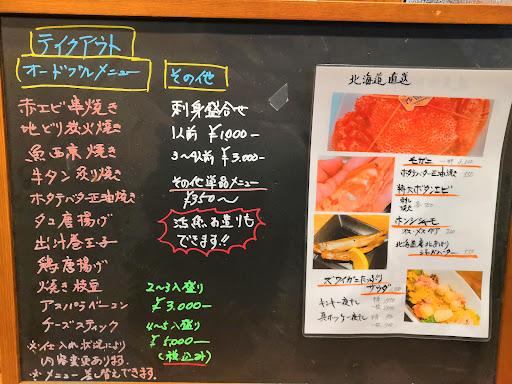 テイクアウト
オードブルメニュー
赤エビ串焼き
地どり炭火焼き
魚西京焼き
牛タン炙り焼き
ホタテバター正油焼き
タコ唐揚げ
出し汁巻玉子
鶏唐揚げ
焼き枝豆
アスパラベーコン
チーズスティック
※仕入れ状況により
内容変更あります。
※メニュー差し替えできます。
その他
刺身盛合せ
1人前 ¥1,000-
3~4人前 ¥3,000-
その他単品メニュー
¥350~
活魚お造りも
できます!!
2~3人盛り
¥3,000-
4~5人盛り
¥5,000-
(税込み)
北海道直送
毛ガニ
ホタテバター正油焼き 550
特大ボタンエビ
ホンシシャモ
北海道産北あかり
ズワイガニたっぷり
サラダ
キンキ一夜干し
真ホッケ一夜干し